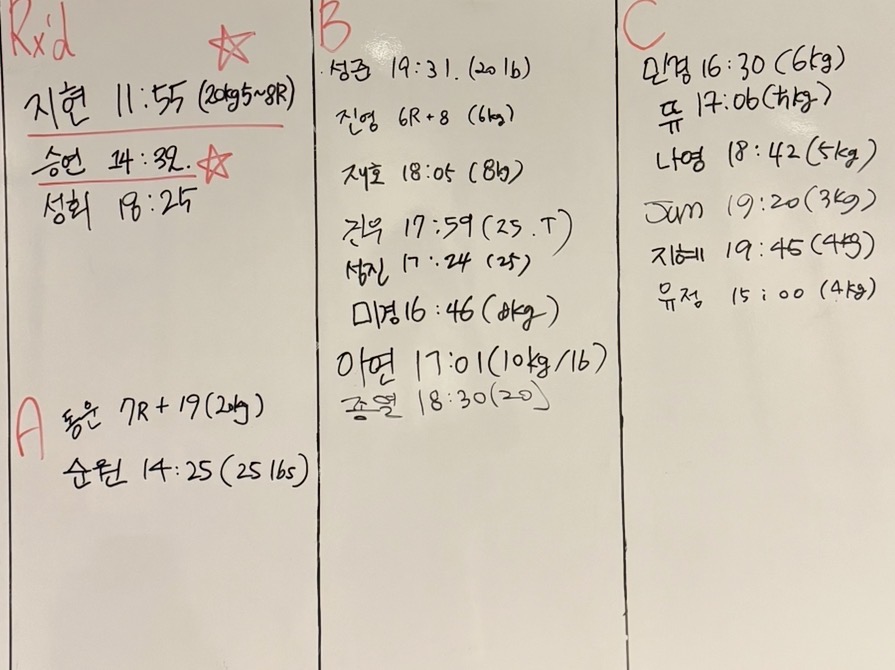 Rx'd
지현 11:55 (20kg 5~8R)
승연 14:32.
성희 18:25
A
동운 7R + 19 (20kg)
순원 14:25 (25 lbs)
B
성준 19:31. (20 lb)
진영 6R + 8 (6kg)
재호 18:05 (8kg)
진우 17:59 (25.T)
성진 17:24 (25)
미경 16:46 (8kg)
아연 17:01 (10kg/lb)
종열 18:30 (20)
C
민경 16:30 (6kg)
쮸 17:06
나영 18:42 (5kg)
Jum 19:20 (3kg)
지혜 19:45 (4kg)
유정 15:00 (4kg)